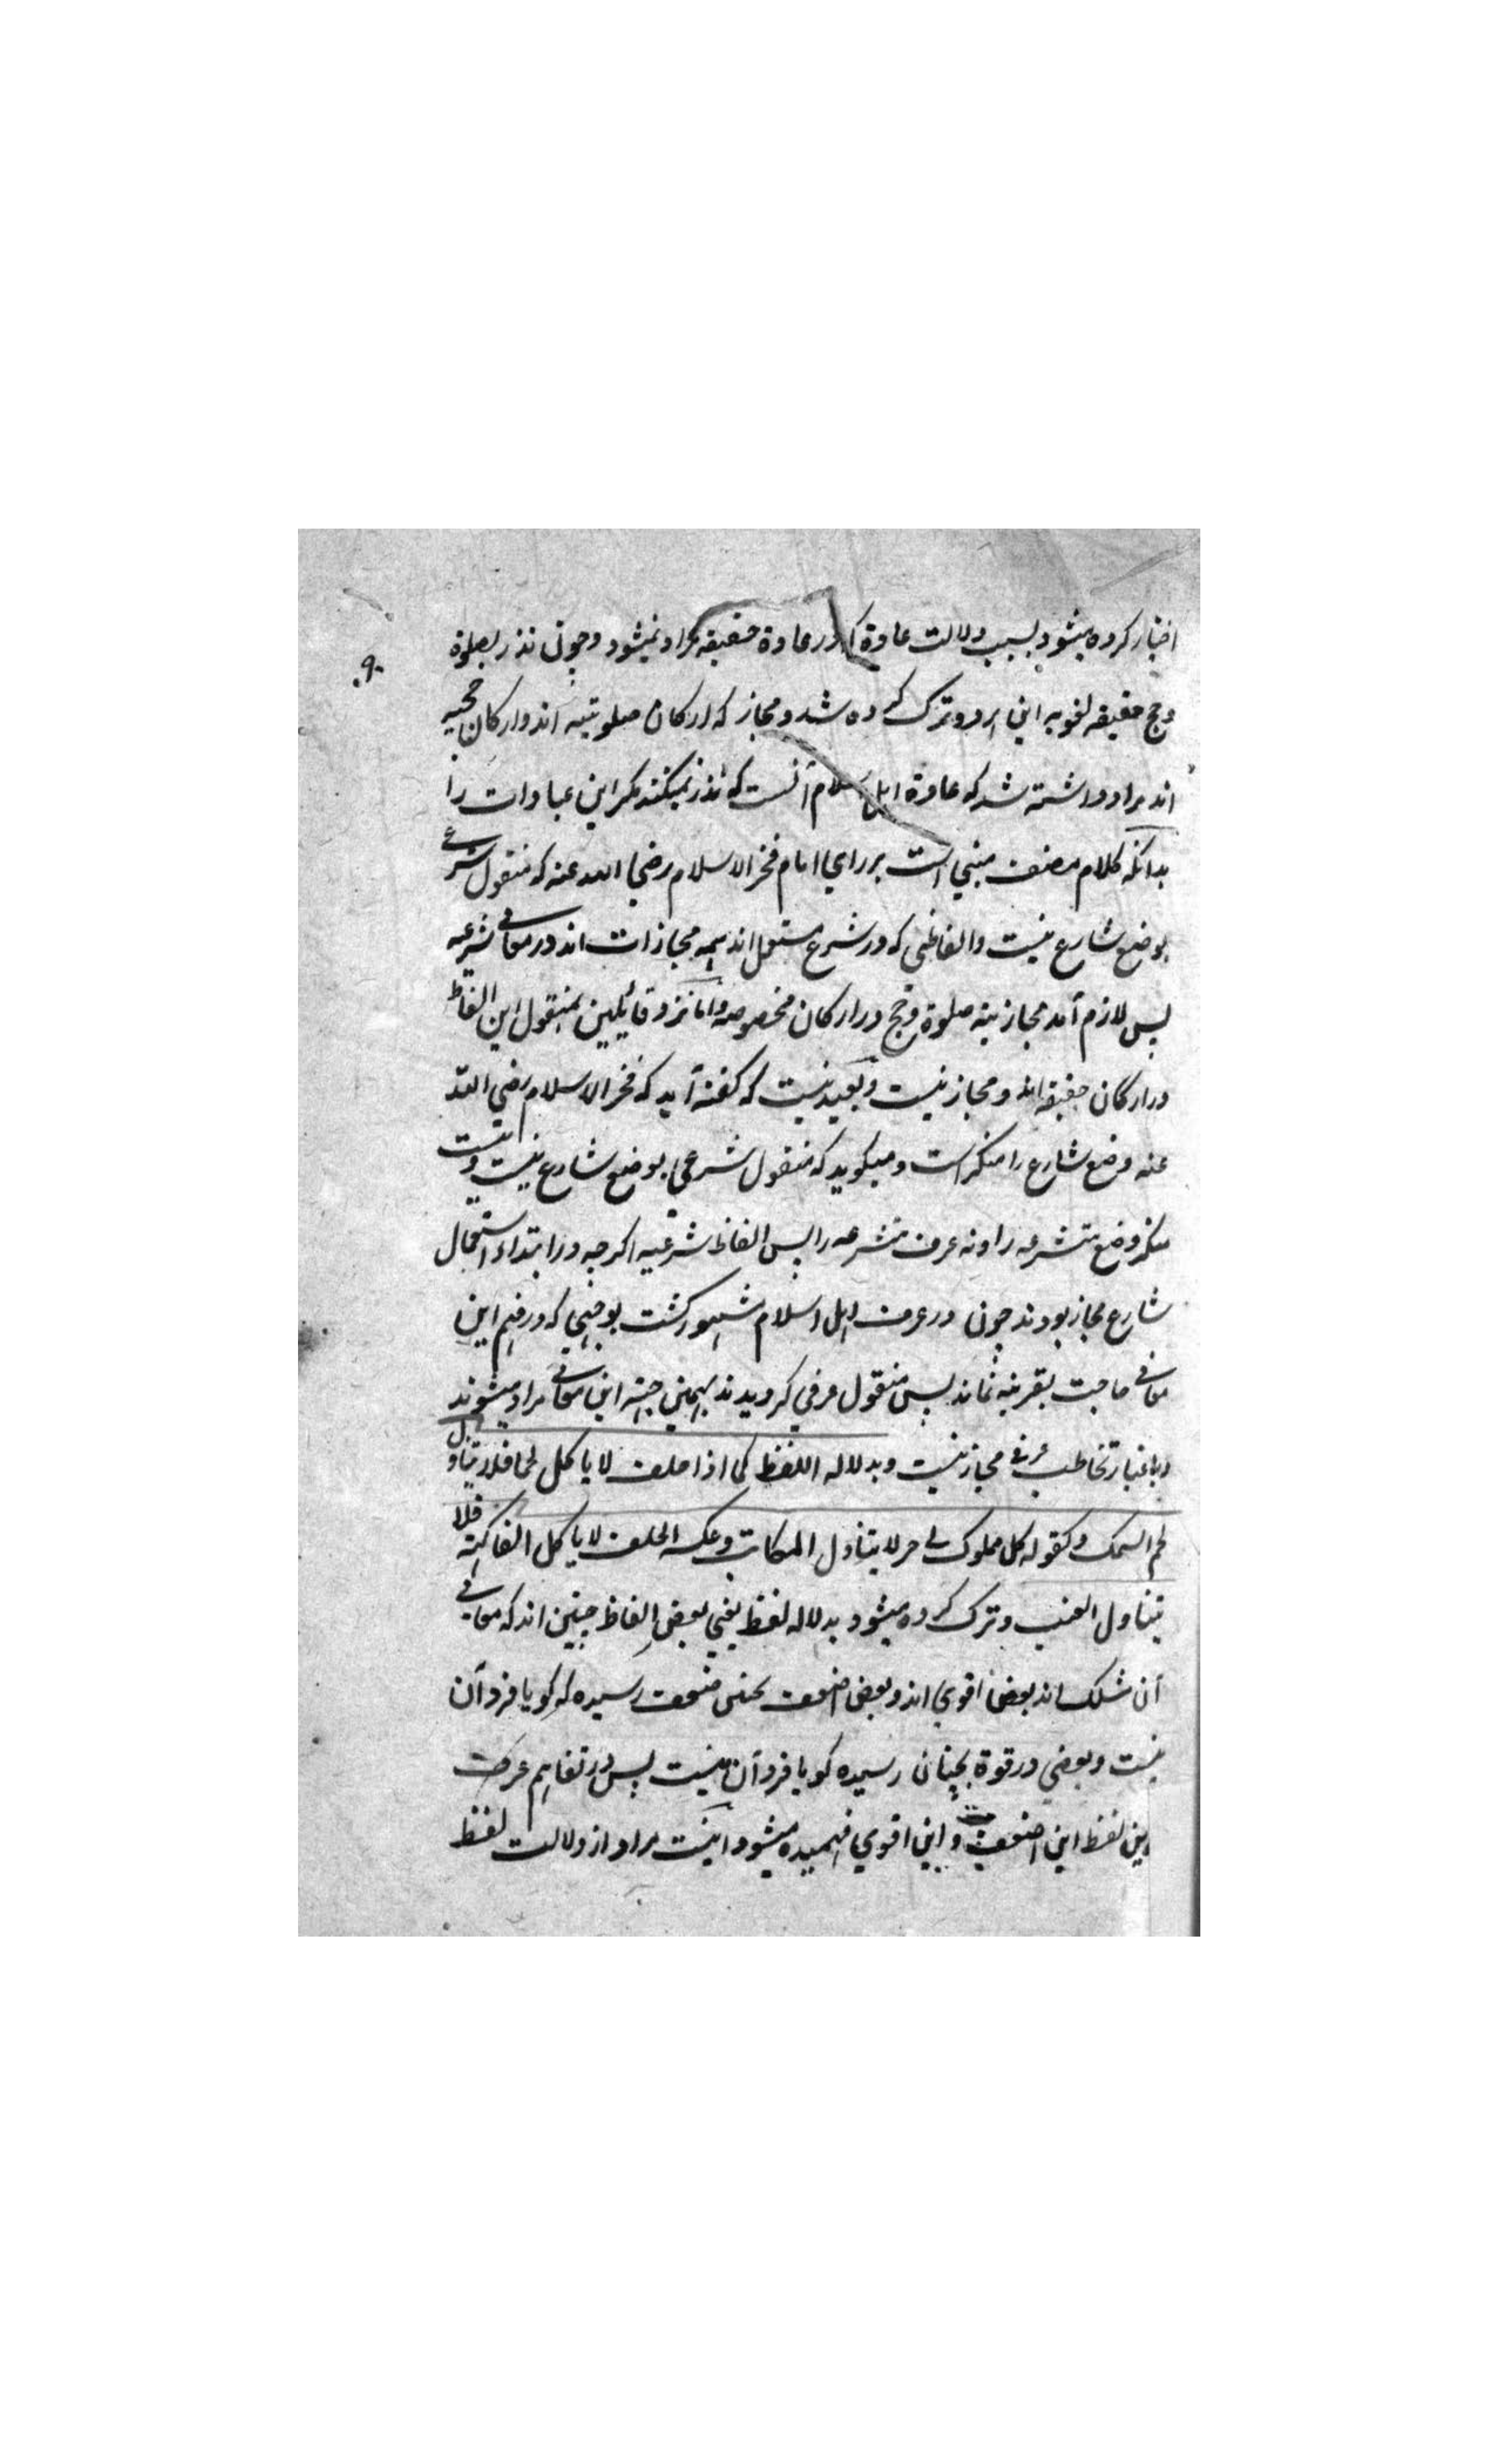 اختیار کرده میشود بسبب دلالت عادة که در عادة حقیقه مراد نمیشود و چون نذر بصلوة
۹۰
و حج حقیقه لغویه این هر دو ترک کرده شد و مجاز که ارکان صلوتیه اند و ارکان حجیه
اند مراد داشته شد که عادة اهل اسلام آنست که نذر نمیکنند مگر این عبادات را
بدانکه کلام مصنف مبنی است بر رای امام فخر الاسلام رضی الله عنه که منقول شرعی
بوضع شارع نیست و الفاظی که در شرع مستعمل اند همه مجازات اند در معانی شرعیه
پس لازم آمد مجازیته صلوة و حج در ارکان مخصوصه و اما نزد قائلین بمنقول این الفاظ
در ارکان حقیقه اند و مجاز نیست و بعید نیست که گفته آید که فخر الاسلام رضی الله
عنه وضع شارع را منکر است و میگوید که منقول شرعی بوضع شارع نیست و نیست
منکر وضع متشرعه را و نه عرف متشرعه را پس الفاظ شرعیه اگرچه در ابتداء استعمال
شارع مجاز بودند چون در عرف اهل اسلام مشهور گشت بوجهی که در فهم این
معانی حاجت بقرینه نماند پس منقول عرفی گردیدند بهمین جهته این معانی مراد میشوند
و باعتبار تخاطب عرفی مجاز نیست و بدلاله اللفظ کما اذا حلف لا یاکل لحما فلا یتناول
لحم السمک و کقوله کل مملوک لی حر لا یتناول المکاتب و عکسه الحلف لا یاکل الفاکهة فلا
یتناول العنب و ترک کرده میشود بدلاله لفظ یعنی بعض الفاظ چنین اند که معانی
آن مشکک اند بعض اقوی اند و بعض اضعف بحتی ضعف رسیده که گویا فرد آن
نیست و بعضی در قوة بچنان رسیده گویا فرد آن نیست پس در تفاهم عرف
ازین لفظ این اضعف و این اقوی فهمیده میشود اینست مراد از دلالت لفظ